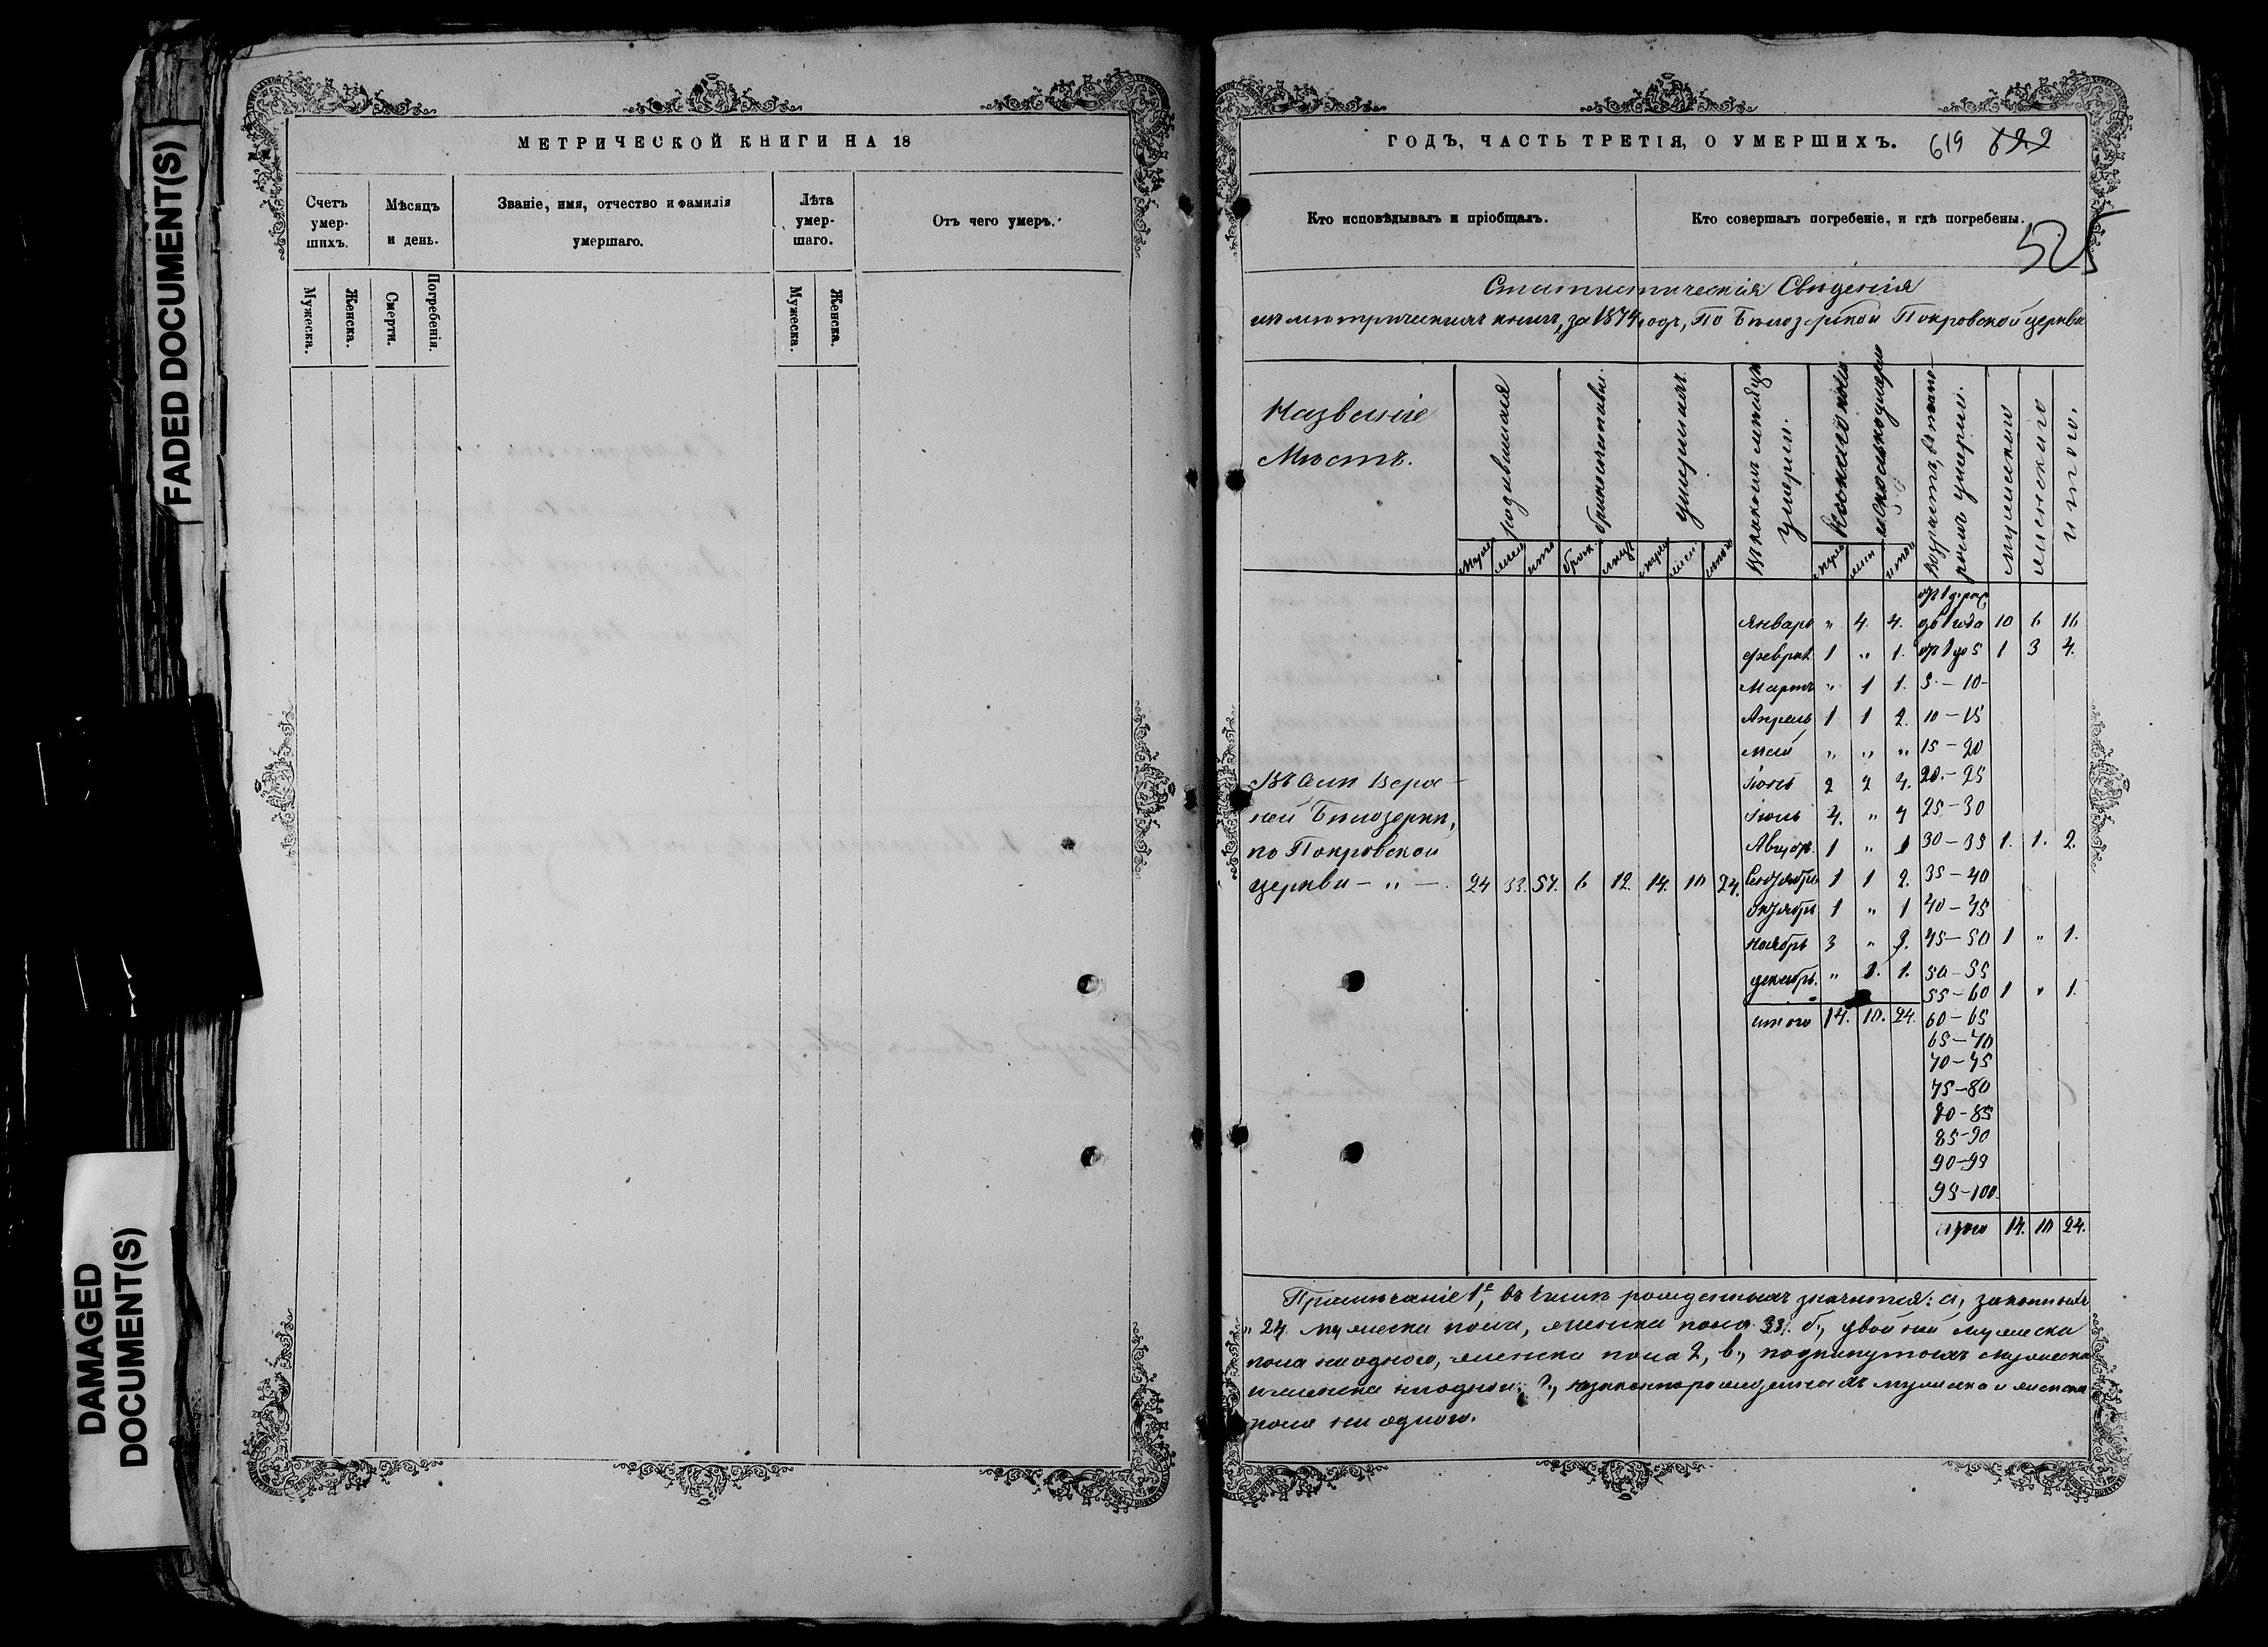 FADED DOCUMENT(S)
DAMAGED
DOCUMENT(S)
МЕТРИЧЕСКОЙ КНИГИ НА 18
Счетъ
умер-
шихъ.
Мѣсяцъ
и день.
Званіе, имя, отчество и фамилія
умершаго.
Лѣта
умер-
шаго.
Отъ чего умеръ.
Мужеска.
Женска.
Смерти.
Погребенія.
Мужеска.
Женска.
ГОДЪ, ЧАСТЬ ТРЕТІЯ, О УМЕРШИХЪ. 619 622
Кто исповѣдывалъ и пріобщалъ.
Кто совершалъ погребеніе, и гдѣ погребены.
525
Статистическія Свѣденія
метрическихъ книгъ, за 1874 годъ, По Бѣлозерской Покровской церкви
Названіе
Мѣстъ.
родившихся
бракосочетавш.
умершихъ
Въ какомъ мѣсяцѣ
умерли.
Возрастъ, въ кото-
ромъ умерли.
мужескаго
женскаго
итого.
отъ 1 дня
Январь " 4. 4. до 1 года 10 6 16
Февраль 1 " 1. отъ 1 до 5 1 3 4.
Мартъ " 1 1. 5 – 10
Апрель 1 1 2. 10 – 15
май " " " 15 – 20
Іюнь 2 2 4. 20 – 25
Іюль 4. " 4 25 – 30
Августъ 1 " 1 30 – 35 1. 1. 2.
Сентябрь 1 1 2. 35 – 40
Октябрь 1 " 1 40 – 45
Ноябрь 3 " 3. 45 – 50 1 " 1.
декабрь. " 1. 1. 50 – 55
55 – 60 1 " 1.
итого 14. 10. 24. 60 – 65
65 – 70
70 – 75
75 – 80
80 – 85
85 – 90
90 – 95
95 – 100
итого 14. 10 24.
Въ селѣ Верх-
ней Бѣлозеркѣ,
по Покровской
церкви – " – 24 33. 57. 6 12. 14. 10 24.
Примѣчаніе 1е, въ числѣ рожденныхъ значится: а, законныхъ
24 мужеска пола, женска пола 33. б., двойни мужеска
пола ни одного, женска пола 2, в., подкинутыхъ мужеска
и женска ни одного; г., незаконнорожденныхъ мужеска и женска
пола ни одного.